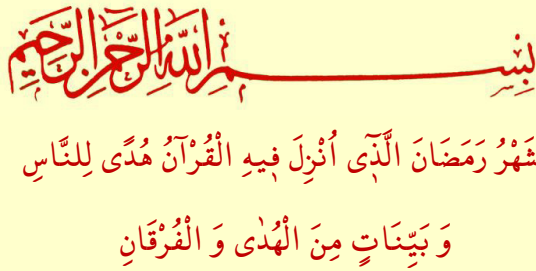 بِسْمِ اللهِ الرَّحْمٰنِ الرَّحِيمِ
شَهْرُ رَمَضَانَ الَّذِٓى اُنْزِلَ فِيهِ الْقُرْآنُ هُدًى لِلنَّاسِ
وَ بَيِّنَاتٍ مِنَ الْهُدٰى وَ الْفُرْقَانِ